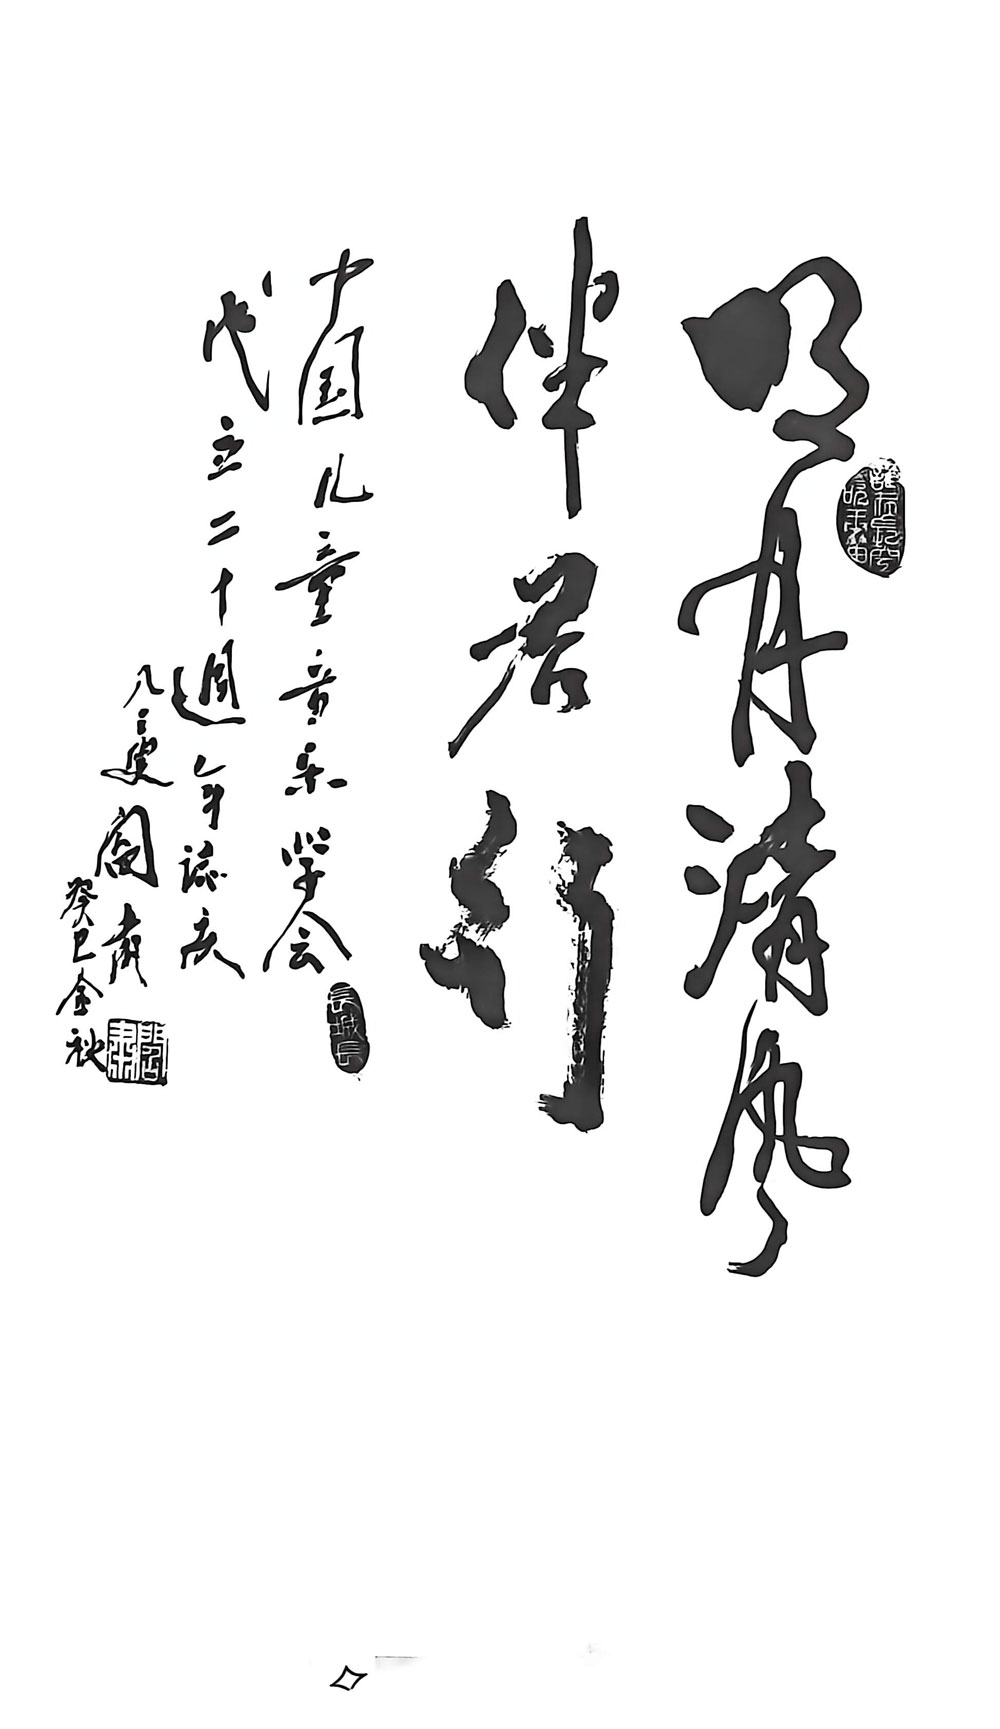 明月清风
伴君行
中国儿童音乐学会
成立二十週年誌庆
八三叟阎肃
癸巳金秋
阎肃